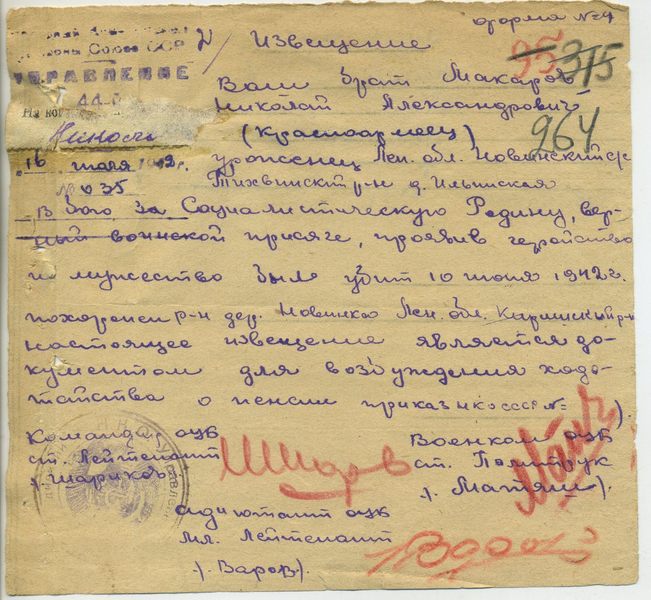 форма №4
Извещение
95 375
Союза ССР
УПРАВЛЕНИЕ
44
Ваш брат Макаров
Николай Александрович
(красноармеец)
264
16 июля 1942г.
№ 035
уроженец Лен. обл. Новинский с/с
Тихвинск р-н д. Ильинская
в бою за Социалистическую Родину, вер-
ный воинской присяге, проявив геройство
и мужество был убит 10 июня 1942 г.
похоронен р-н дер. Новинка Лен. обл. Киришский р-н
настоящее извещение является до-
кументом для возбуждения хода-
тайства о пенсии приказ НКО СССР №
Командир
ст. Лейтенант
Шариков
Военком
ст. Политрук
Матяш
адъютант
мл. Лейтенант
Варов